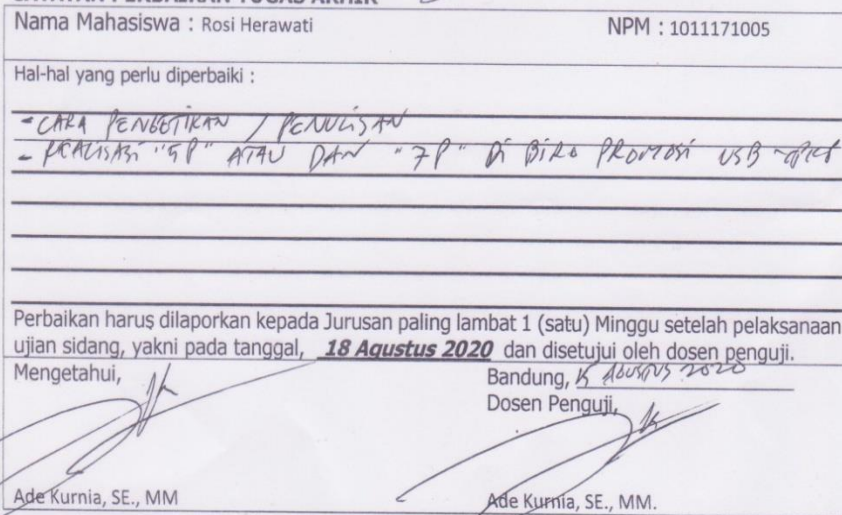 CATATAN PERBAIKAN TUGAS AKHIR
Nama Mahasiswa : Rosi Herawati NPM : 1011171005
Hal-hal yang perlu diperbaiki :
- CARA PENGETIKAN / PENULISAN
- REALISASI "5P" ATAU DAN "7P" DI BIRO PROMOSI USB -
Perbaikan harus dilaporkan kepada Jurusan paling lambat 1 (satu) Minggu setelah pelaksanaan
ujian sidang, yakni pada tanggal, 18 Agustus 2020 dan disetujui oleh dosen penguji.
Mengetahui, Bandung, 15 AGUSTUS 2020
Dosen Penguji,
Ade Kurnia, SE., MM Ade Kurnia, SE., MM.